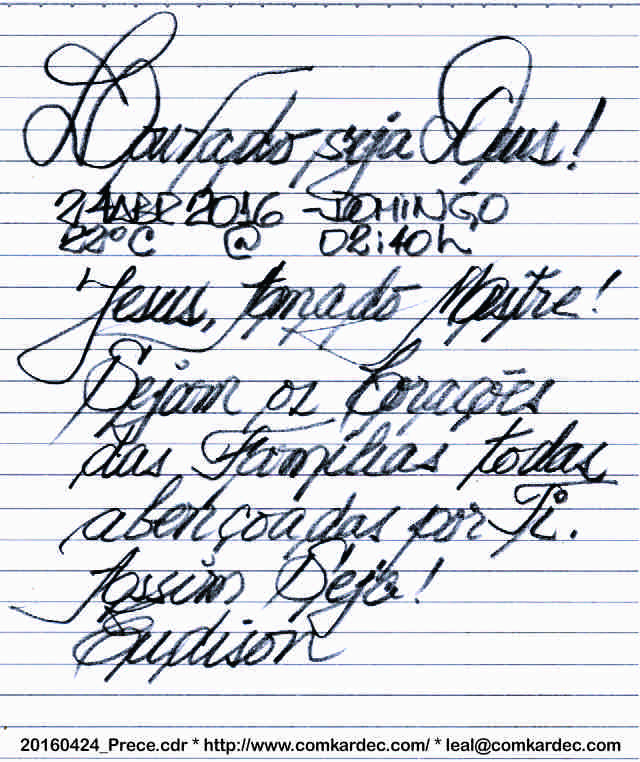 Louvado seja Deus!
24ABR2016 - DOMINGO
22°C @ 02:40h
Jesus, Amado Mestre!
Sejam os Corações
das Famílias todas
abençoadas por Ti.
Assim Seja!
Eudison
20160424_Prece.cdr * http://www.comkardec.com/ * leal@comkardec.com